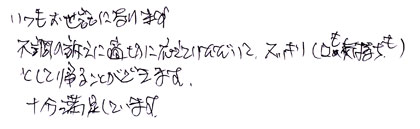 いつもお世話になります
不調の訴えに適切に応えていただいて、スッキリ(心も気持ちも)
として帰ることができます。
十分満足しています。